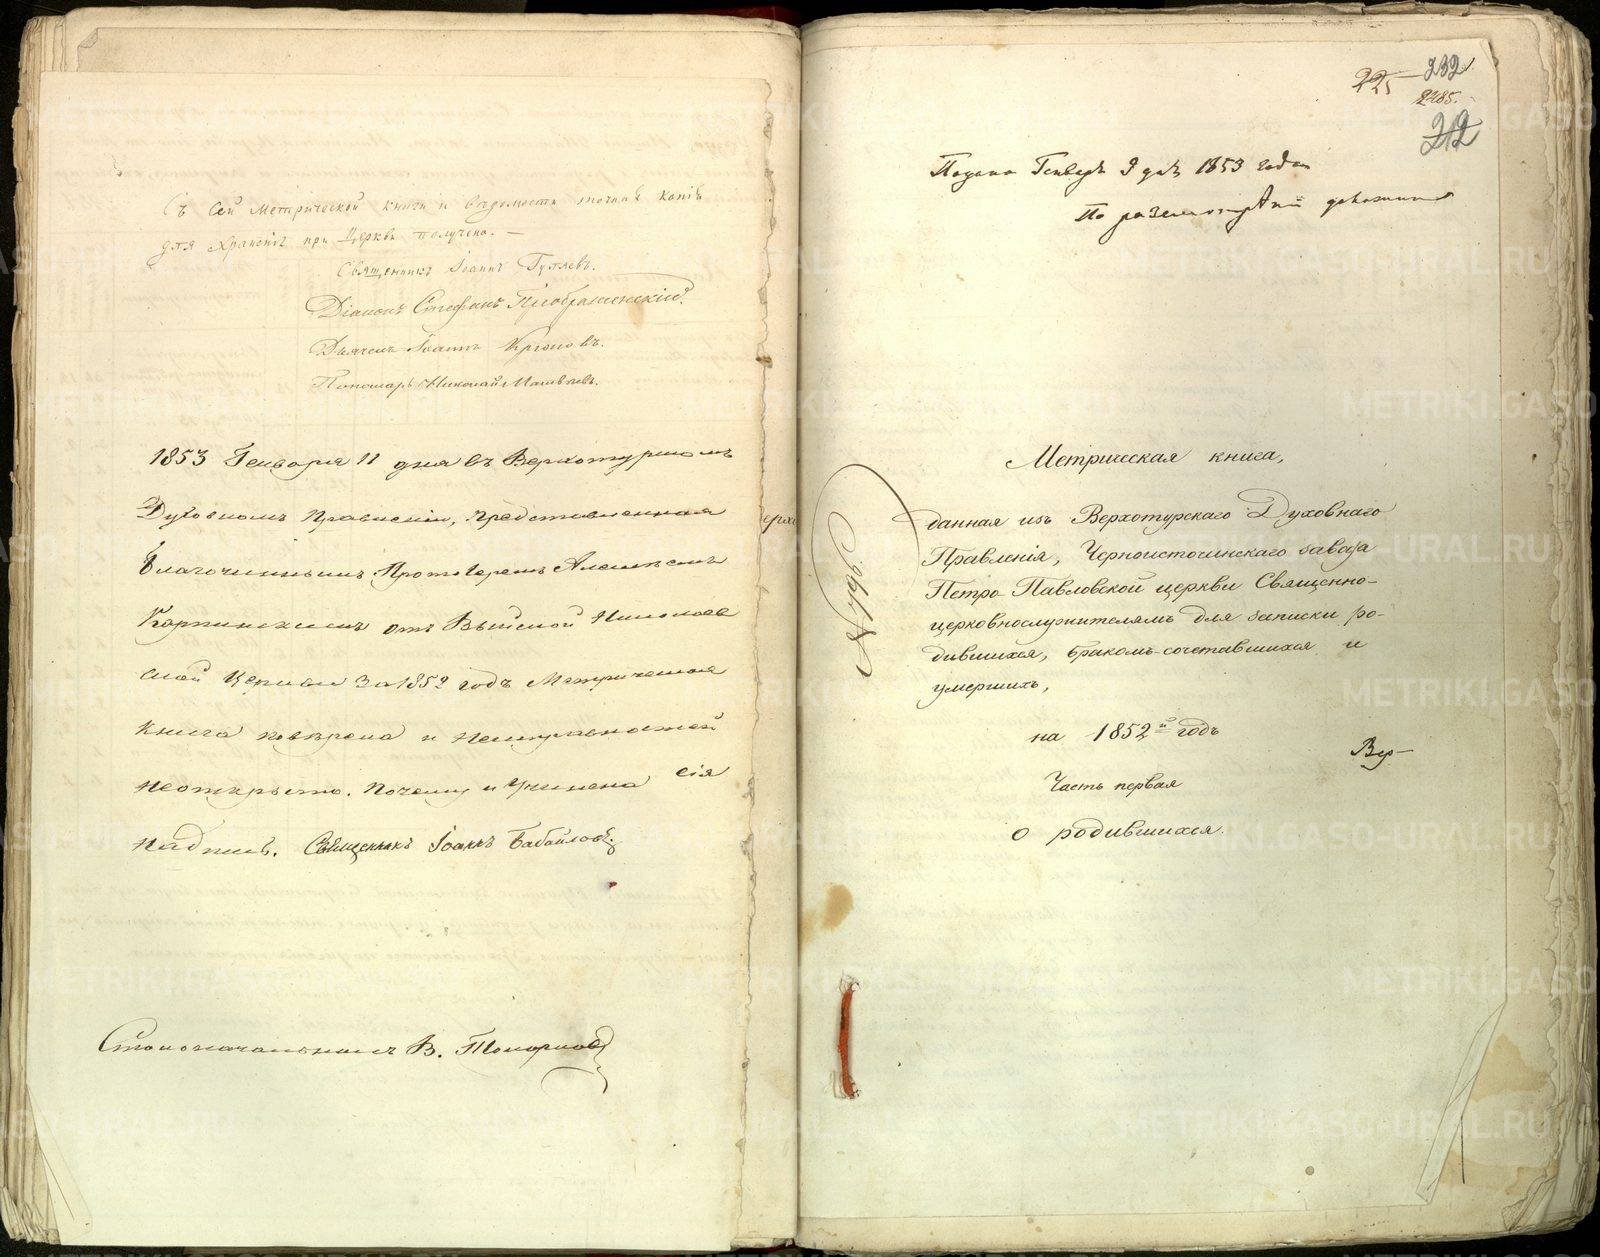 Съ сей метрической книги и ведомости точная копія
для храненія при Церкви получена. —
Священникъ Іоаннъ Гуляевъ.
Діаконъ Стефанъ Преображенскій.
Дьячекъ Іоаннъ Крюковъ.
Пономарь Николай
1853 Генваря 11 дня въ Верхотурскомъ
Духовномъ Правленіи, представленная
Благочиннымъ Протоіереемъ Алексѣемъ
Карпинскимъ отъ Выйской Николаев
ской Церкви за 1852 годъ Метрическая
книга повѣрена и неисправностей
неоткрыто. Почему и учинена сія
надпись. Священникъ Іоаннъ Бабайловъ.
Столоначальникъ В. Топорковъ
225 232
2485.
212
Подана Генваря 9 дня 1853 года
По разсмотрѣніи доложить
Метрическая книга,
данная изъ Верхотурскаго Духовнаго
Правленія, Черноисточинскаго завода
Петро-Павловской церкви Священно-
церковнослужителямъ для записки ро-
дившихся, бракомъ сочетавшихся и
умершихъ,
на 1852й годъ
Часть первая
о родившихся.
Вер-
№ 796.
METRIKI.GASO-URAL.RU